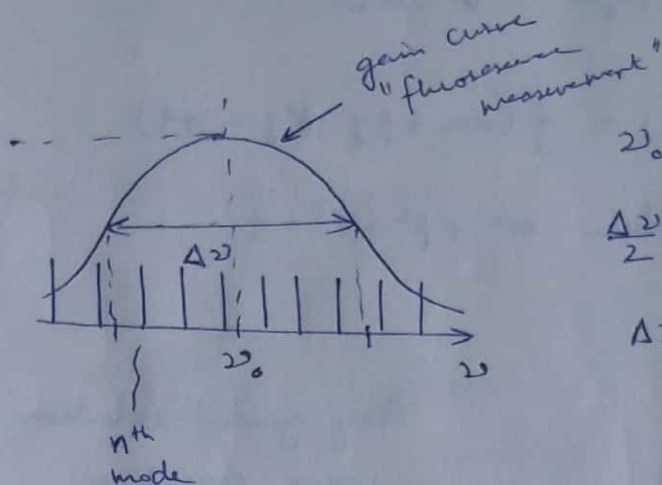 gain curve
"fluorescence
measurement"
ν₀
Δν
Δν/2
Δ
ν₀
ν
nᵗʰ
mode